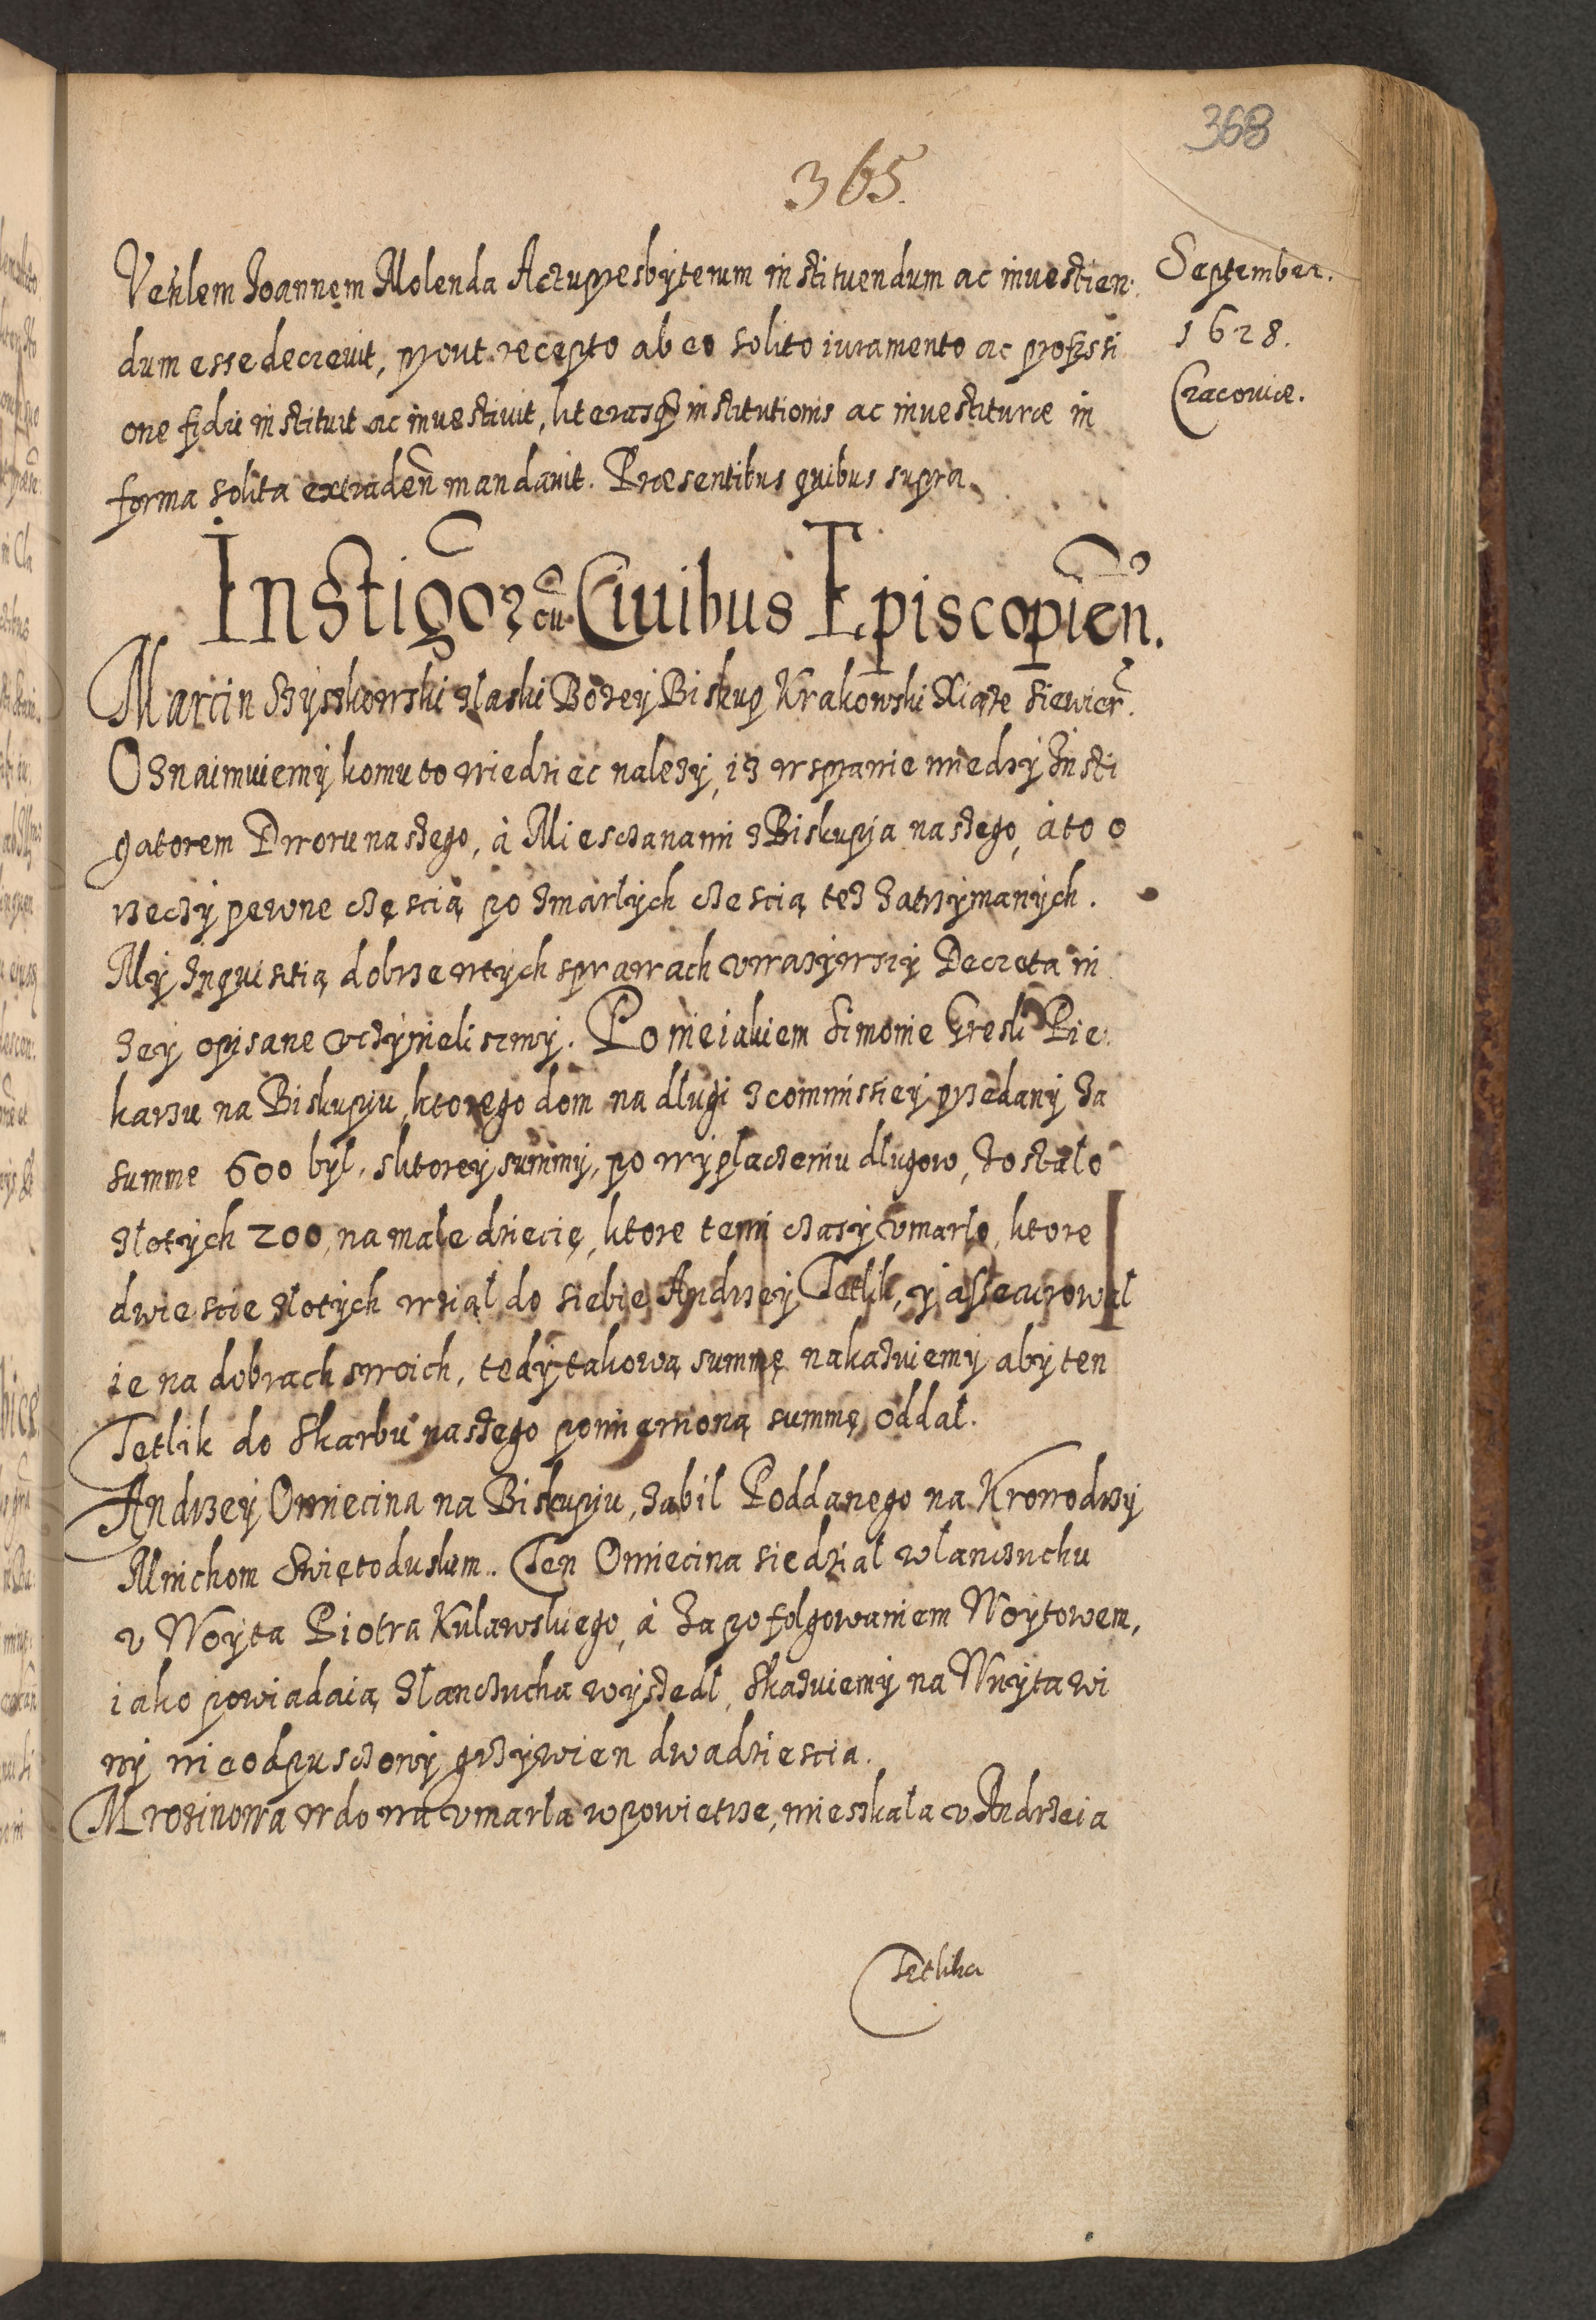 368
365.
September.
1628.
Cracoviæ.
Veñlem Joannem Molenda Actupresbyterum instituendum ac investien:
dum esse decrevit, prout recepto ab eo solito iuramento ac professi
one fidei instituit ac investivit, literasq̃ institutionis ac investituræ in
forma solita extraden̄ mandavit. Præsentibus quibus supra.
Instigor cū Civibus Episcopien̄.
Marcin Szyszkowski z łaski Bozey Biskup Krakowski Xiąże Siewier.
Oznaimuiemy komu to wiedziec nalezy, iz w sprawie miedzy Insti
gatorem Dworu naszego, à Miesczanami z Biskupia naszego, à to o
rzeczy pewne częscią po zmarłych czescią tez zatrzymanych.
My Inquisitią dobrze w tych sprawach uważywszy Decreta ni
zey opisane uczynielismy. Po nieiakiem Simonie Gresk Pie:
karzu na Biskupiu, ktorego dom na długi z commissiey przedany za
summe 600 był, z ktorey summy, po wypłaczeniu długow, zostało
złotych 200, na małe dziecię, ktore temi czasy umarło, ktore
dwiescie złotych wziął do siebie Andrzey Tetlik, y assecurował
ie na dobrach swoich, tedy takową summę nakazuiemy aby ten
Tętlik do skarbu naszego pomienioną summę oddał.
Andrzey Owiecina na Biskupiu, zabił Poddanego na Krowodrzy
Mnichom Swiętoduskim. Ten Owiecina siedział w łanczuchu
u Woyta Piotra Kulawskiego, à za pofolgowaniem Woytowem,
iako powiadaią z łanczucha wyszedł, skazuiemy na Wuyta wi
ny nieodpusczony grzywien dwadziescia.
Mrozinowa wdowa umarła w powietrze, mieszkała u Andrzeia
Tetlika